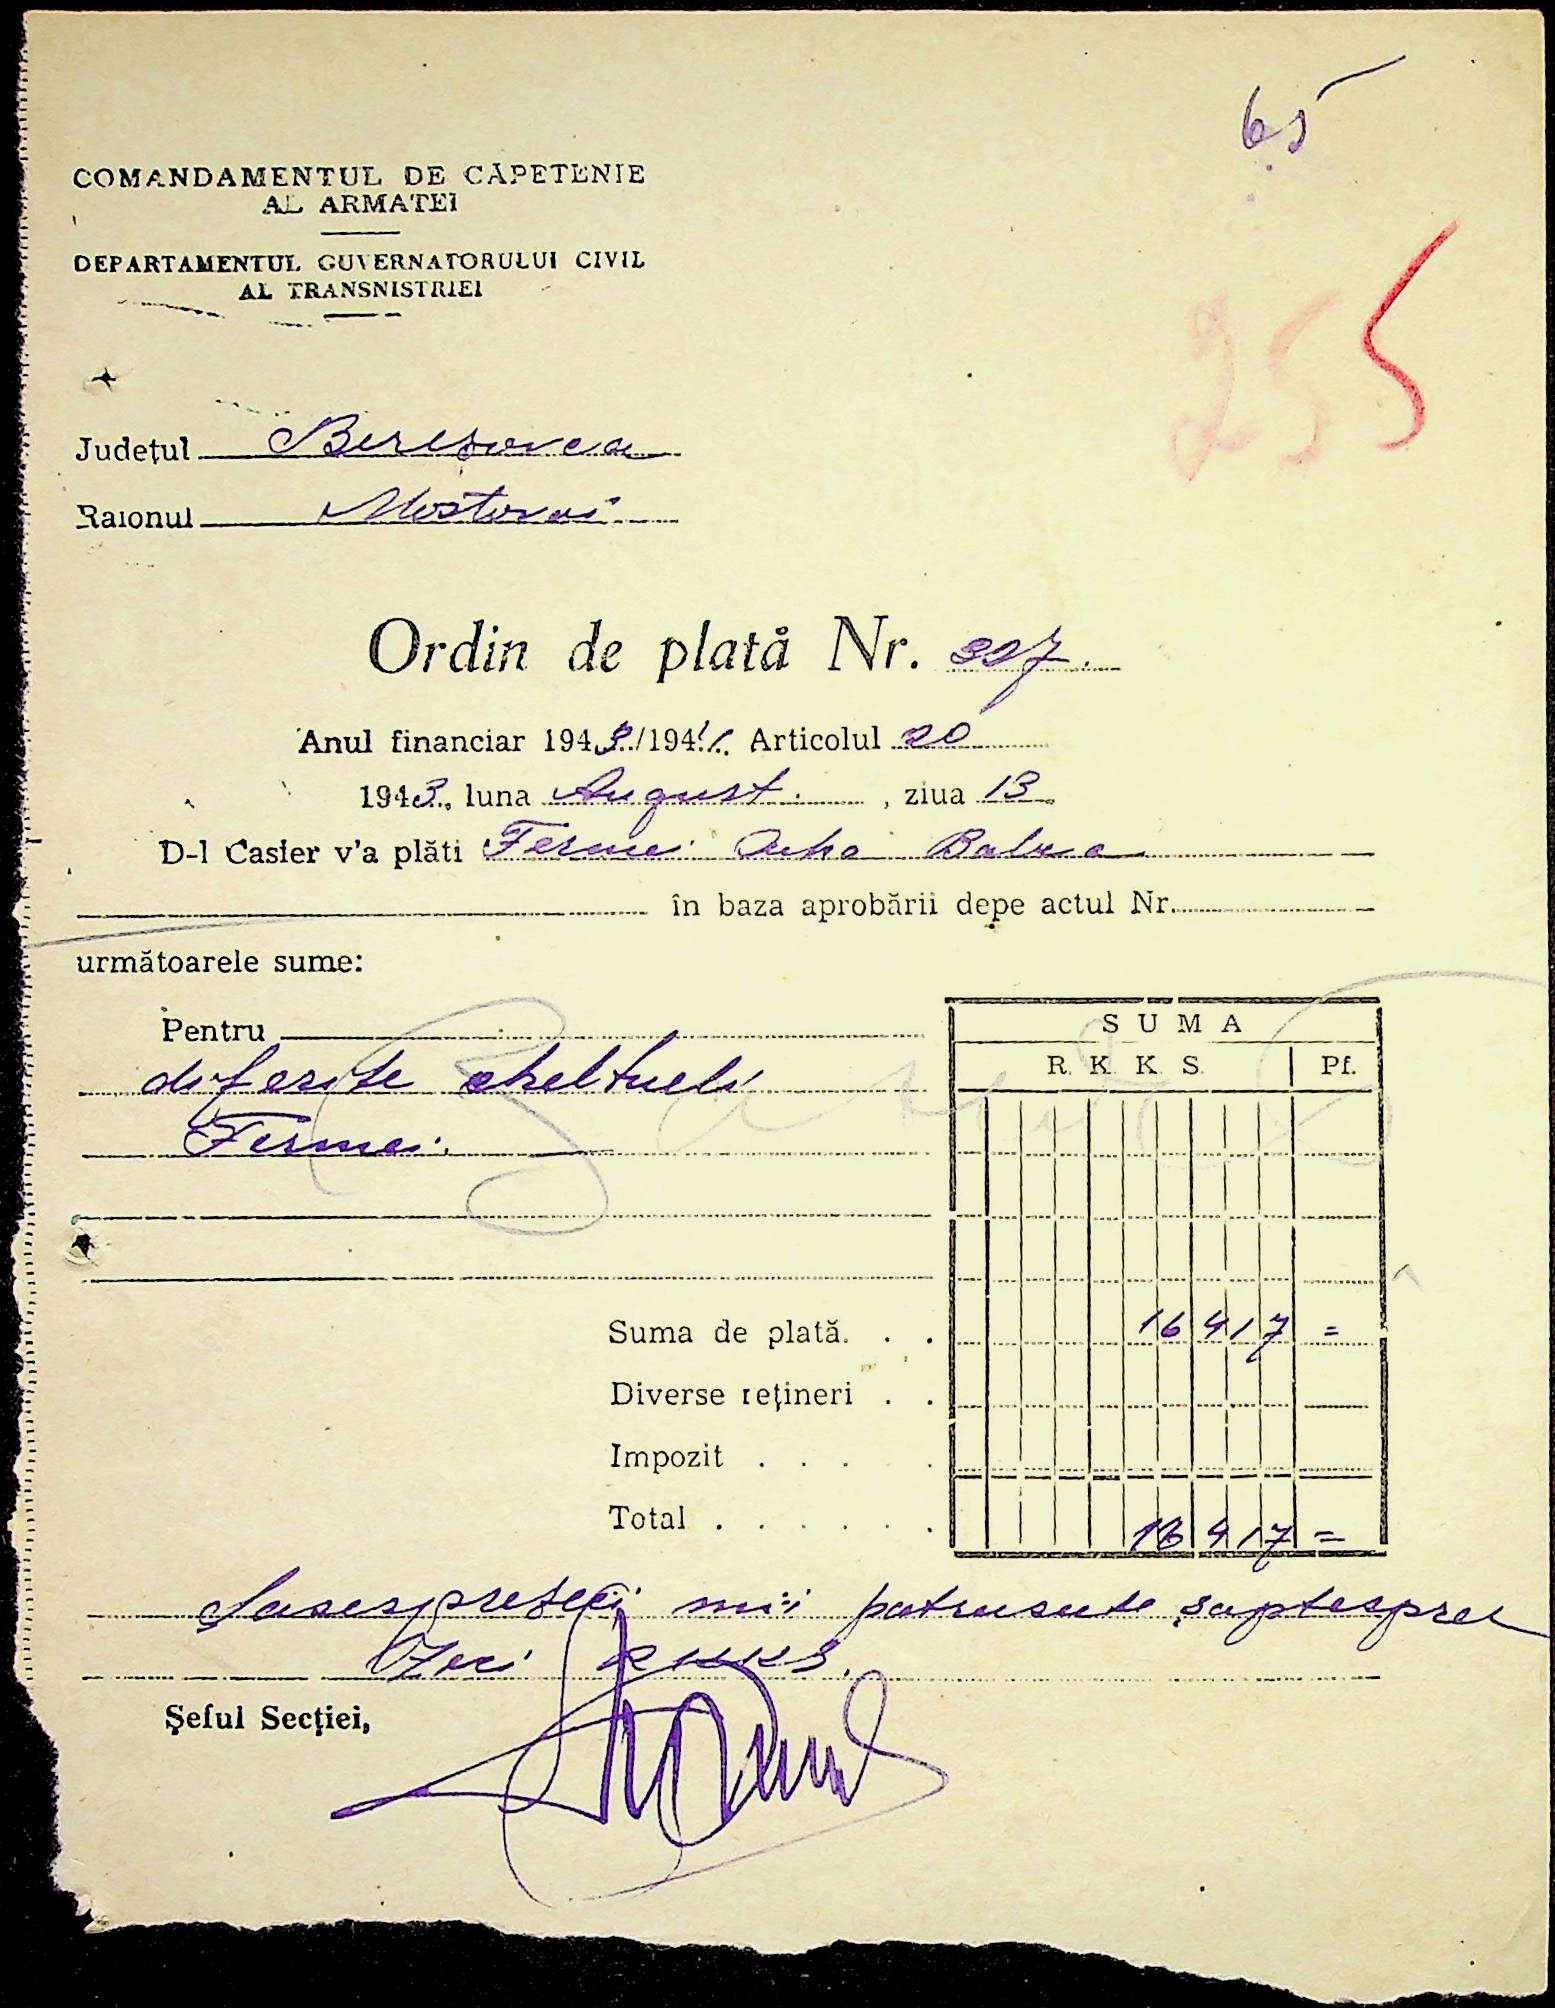 65
COMANDAMENTUL DE CĂPETENIE
AL ARMATEI
DEPARTAMENTUL GUVERNATORULUI CIVIL
AL TRANSNISTRIEI
255
Județul Beresovca
Raionul Mostovoi
Ordin de plată Nr. 327.
Anul financiar 1943/1944 Articolul 20
1943, luna August. , ziua 13
D-l Casier v'a plăti Fermei Balca
în baza aprobării depe actul Nr.
următoarele sume:
Pentru
diferite cheltueli
Fermei.
SUMA
R. K. K. S. Pf.
Suma de plată. . . 16417 =
Diverse rețineri . .
Impozit . . . . .
Total . . . . . . . 16417 =
Șasesprezeci mii patrusute șaptesprez
zeci RKKS.
Șeful Secției,